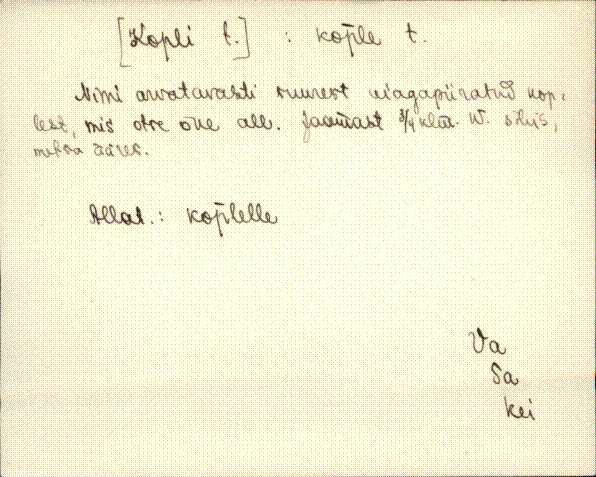 [Kopli t.] : kop̄le t.
Nimi arvatavasti suurest aiaga piiratud kop-
list, mis otse õue all. Jaamast 3/4 klm. W. sihis,
metsa ääres.
Allat.: kop̄lelle
Va
Sa
kei